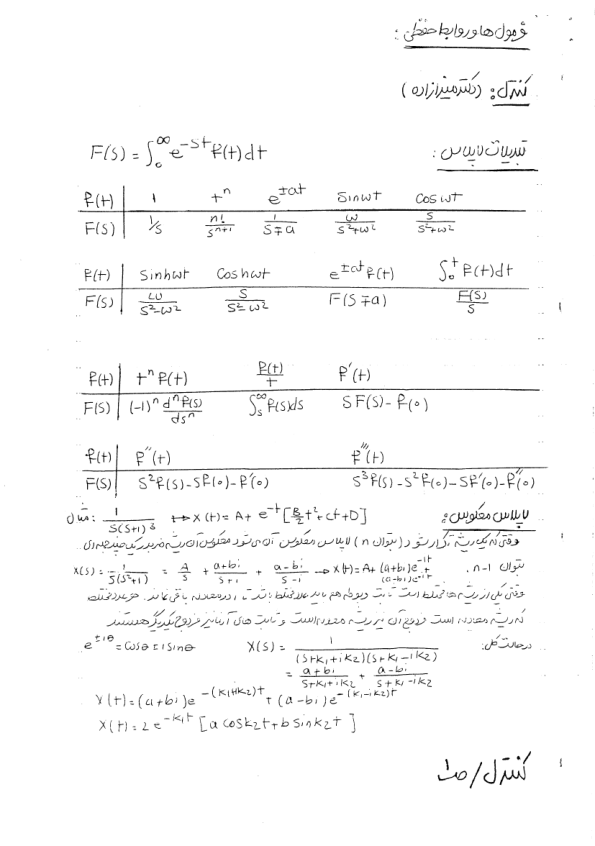 فرمول ها و روابط حفظی :
کنترل : (دکتر میرزازاده)
تبدیلات لاپلاس :
F(s) = ∫₀^∞ e^-st f(t) dt
f(t) | 1 | t^n | e^±at | sinωt | cosωt
F(s) | 1/s | n!/s^n+1 | 1/s∓a | ω/s²+ω² | s/s²+ω²
f(t) | sinhωt | coshωt | e^±at f(t) | ∫₀^t f(t)dt
F(s) | ω/s²-ω² | s/s²-ω² | F(s∓a) | F(s)/s
f(t) | t^n f(t) | f(t)/t | f'(t)
F(s) | (-1)^n d^n f(s)/ds^n | ∫_s^∞ f(s)ds | SF(s) - f(0)
f(t) | f''(t) | f'''(t)
F(s) | s²f(s)-sf(0)-f'(0) | s³f(s)-s²f(0)-sf'(0)-f''(0)
لاپلاس معکوس : مثال : 1/s(s+1)³ ↦ x(t) = A + e^-t [B/2 t² + ct + D]
وقتی که یک ریشه تکرار شود (بتوان n) لاپلاس معکوس آن می شود معکوس آن ریشه ضربدر یک چند جمله ای
بتوان n-1 . X(s) = 1/s(s²+1) = A/s + a+bi/s+1 + a-bi/s-1 → x(t) = A + (a+bi)e^-it + (a-bi)e^-it
وقتی یکی از ریشه ها مختلط است ثابت مربوطه هم باید عدد مختلط باشد تا i در معادله باقی نماند. هر عدد مختلط
که ریشه معادله است مزدوج آن نیز ریشه معادله است و ثابت های آنها نیز مزدوج یکدیگر هستند
درحالت کل : X(s) = 1/(s+k₁+ik₂)(s+k₁-ik₂) e^±iθ = cosθ ± i sinθ
= a+bi/s+k₁+ik₂ + a-bi/s+k₁-ik₂
X(t) = (a+bi)e^-(k₁+ik₂)t + (a-bi)e^-(k₁-ik₂)t
X(t) = 2e^-k₁t [a cosk₂t + b sink₂t]
کنترل / ص1